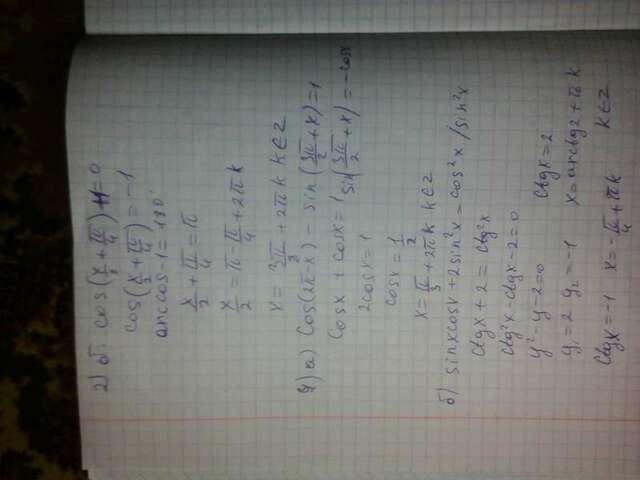 2) б. cos(x/2 + π/4) + 1 = 0
cos(x/2 + π/4) = -1
arccos -1 = 180°
x/2 + π/4 = π
x/2 = π - π/4 + 2πk
x = 3π/2 + 2πk k∈Z
4) а) cos(2π-x) - sin(3π/2 + x) = 1
cosx + cosx = 1 sin(3π/2 + x) = -cosx
2cosx = 1
cosx = 1/2
x = π/3 + 2πk k∈Z
б) sinxcosx + 2sin²x = cos²x /sin²x
ctgx + 2 = ctg²x
ctg²x - ctgx - 2 = 0
y² - y - 2 = 0
y₁ = 2 y₂ = -1 ctgx = 2
ctgx = -1 x = -π/4 + πk x = arcctg2 + πk
k∈Z